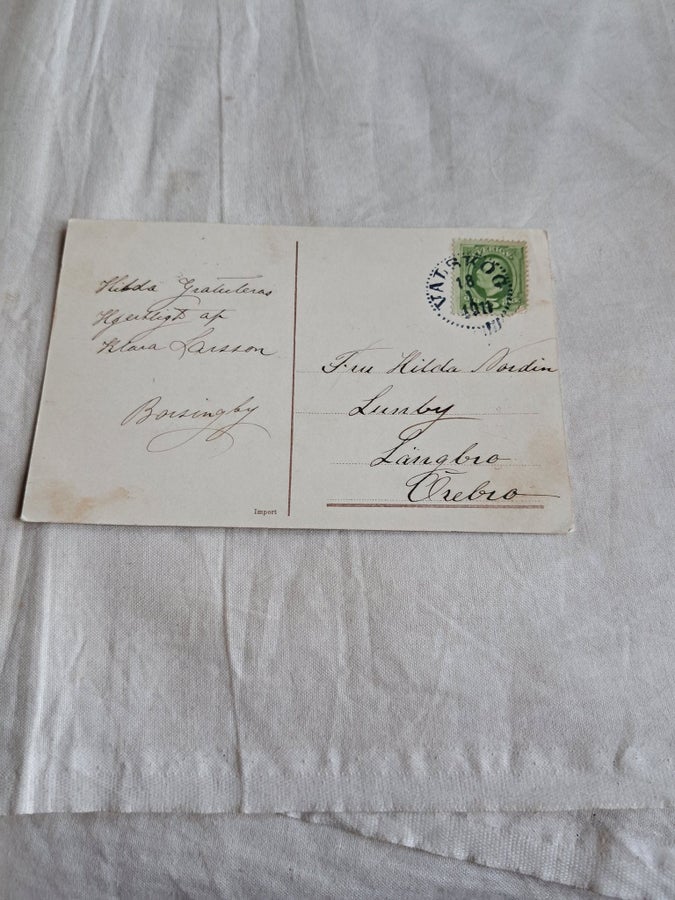 Hilda Gratuleras
Hjertligt af
Klara Larsson
Borsingby
Import
SVERIGE
VALSKOG
18
1
1911
Fru Hilda Nordin
Lunby
Långbro
Örebro